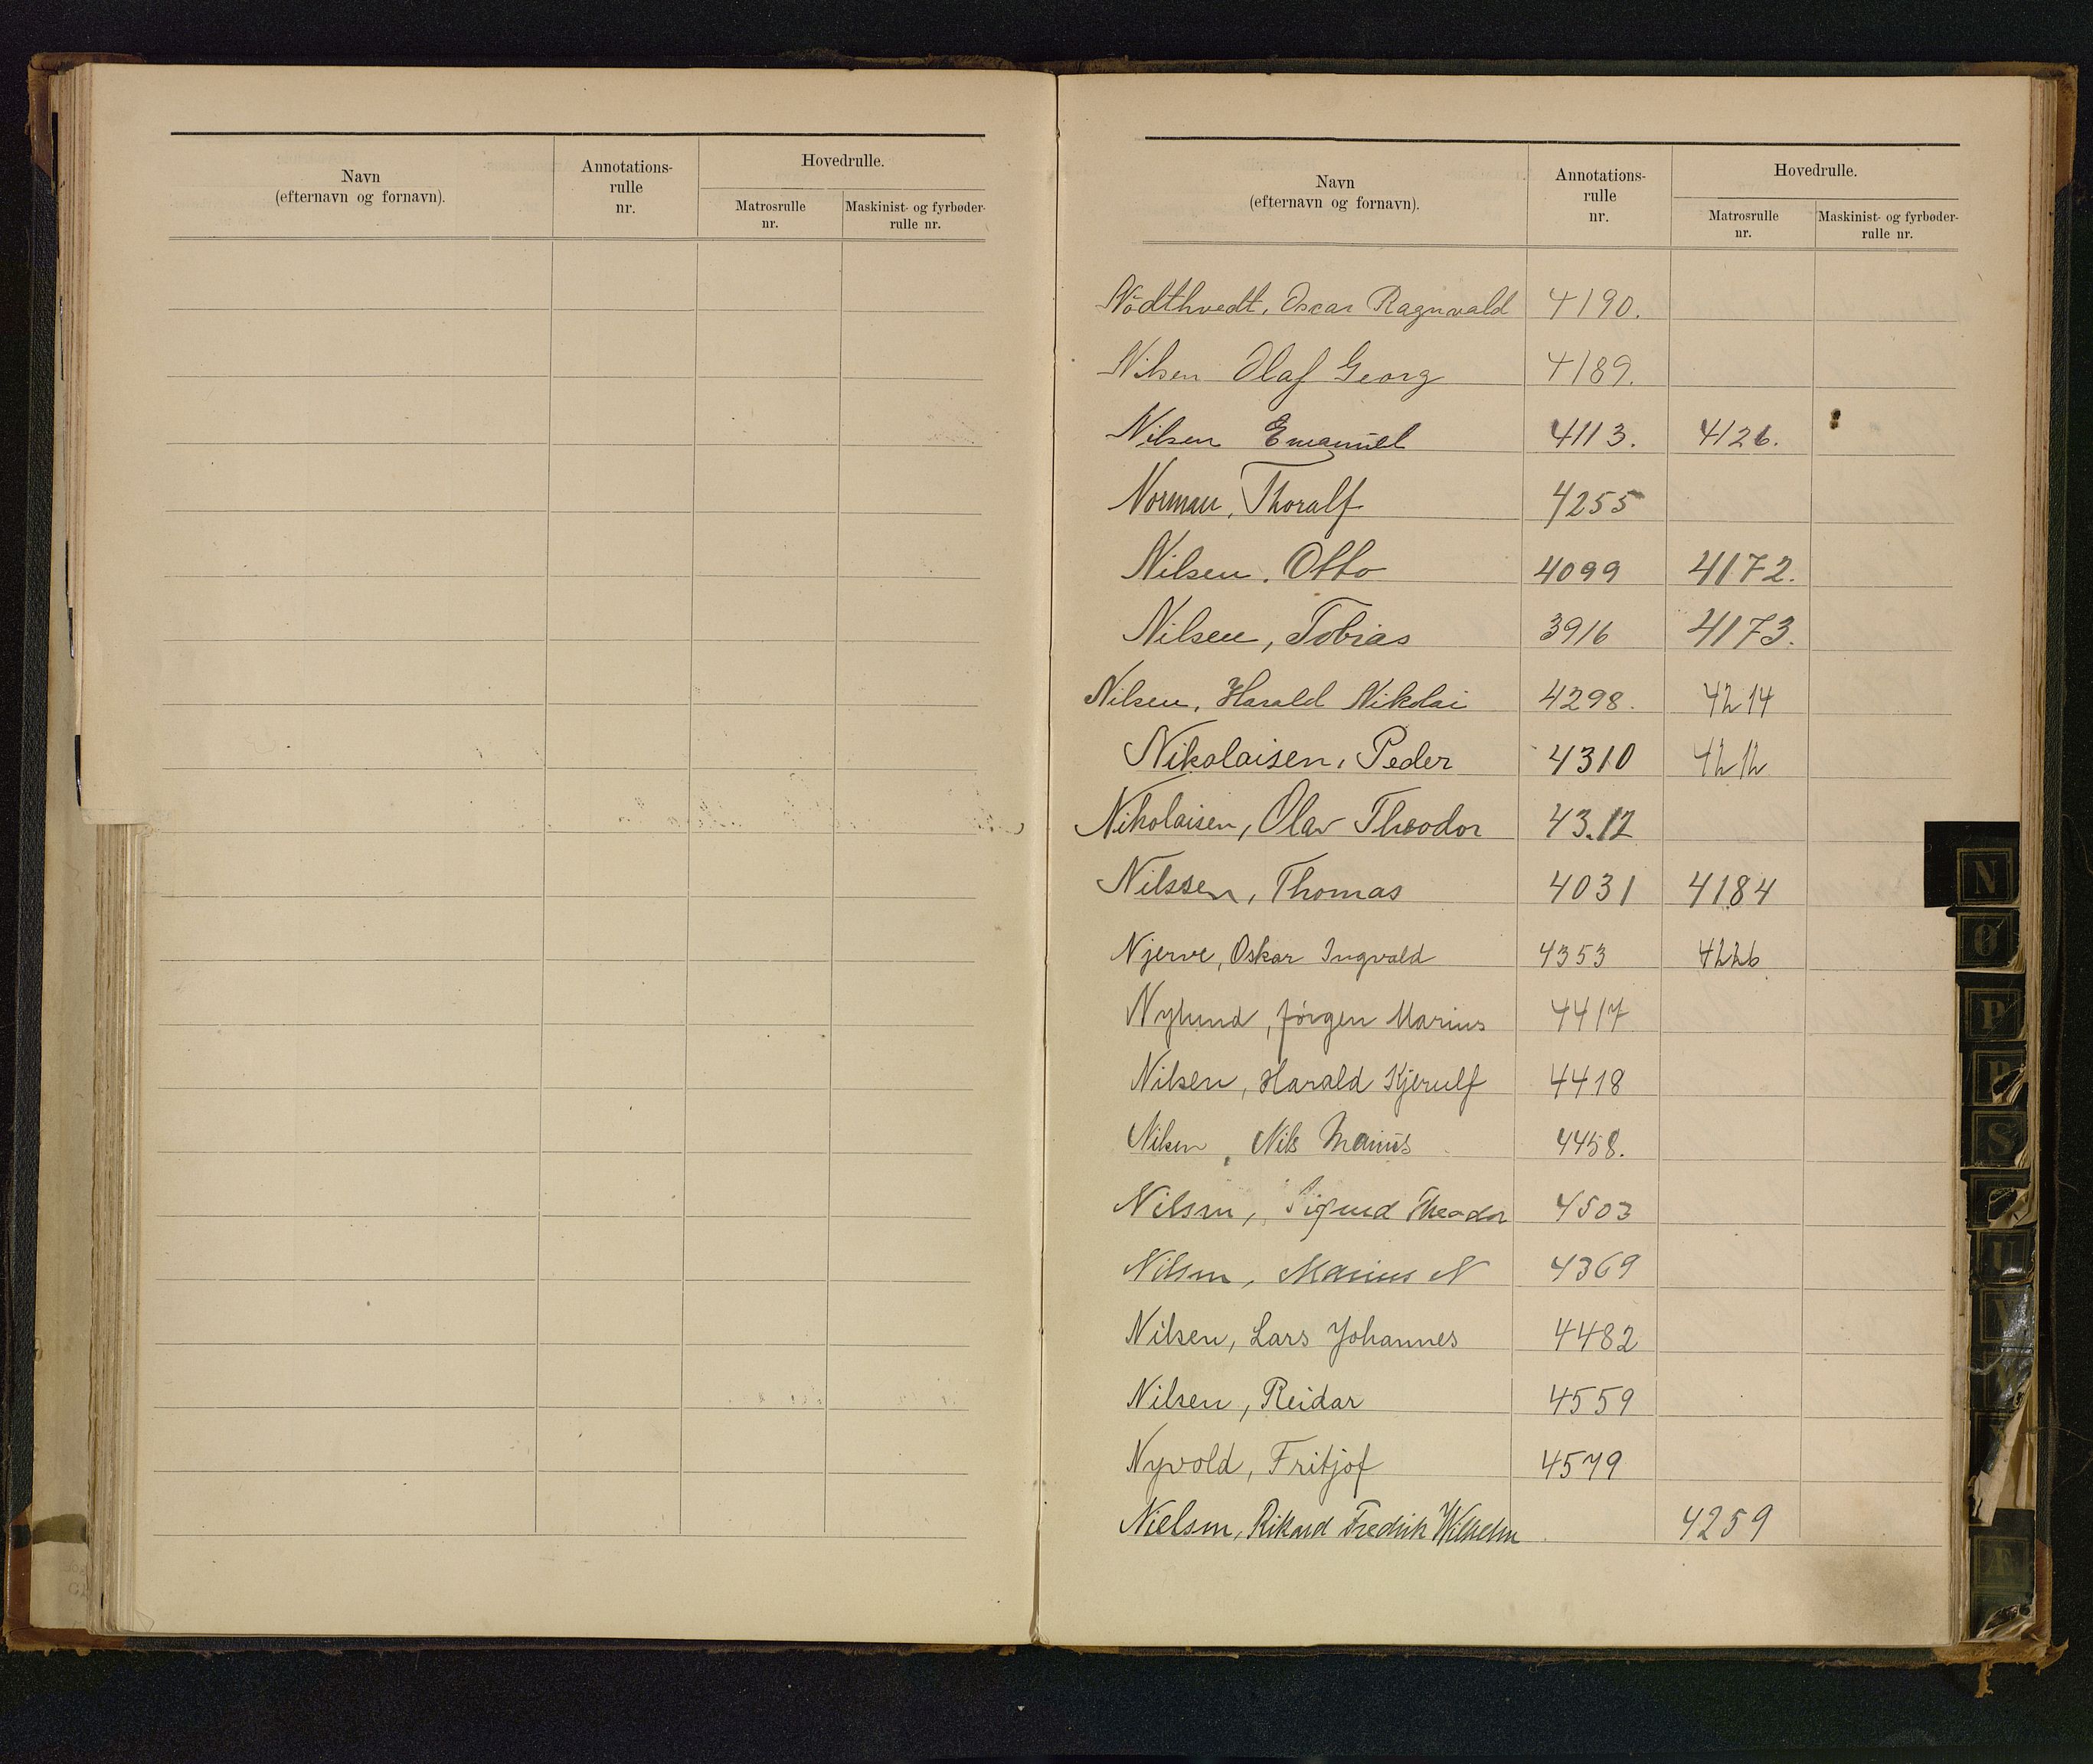 Navn
(efternavn og fornavn).
Annotations-
rulle
nr.
Hovedrulle.
Matrosrulle
nr.
Maskinist- og fyrbøder-
rulle nr.
Navn
(efternavn og fornavn).
Annotations-
rulle
nr.
Hovedrulle.
Matrosrulle
nr.
Maskinist- og fyrbøder-
rulle nr.
Nödthvedt, Oscar Ragnvald 4190.
Nilsen Olaf Georg 4189.
Nilsen Emanuel 4113. 4126.
Norman, Thoralf 4255
Nilsen, Otto 4099 4172.
Nilsen, Tobias 3916 4173.
Nilsen, Harald Nikolai 4298. 4214
Nikolaisen, Peder 4310 4212
Nikolaisen, Olav Theodor 43.12
Nilssen, Thomas 4031 4184
Njerve, Oskar Ingvald 4353 4226
Nylund, Jörgen Marius 4417
Nilsen, Harald Kjerulf 4418
Nilsen, Nils Marius 4458.
Nilsen, Sigurd Theodor 4503
Nilsen, Marius N 4369
Nilsen, Lars Johannes 4482
Nilsen, Reidar 4559
Nyvold, Fritjof 4579
Nielsen, Rikard Fredrik Wilhelm 4259
N
Ø
P
R
S
U
V